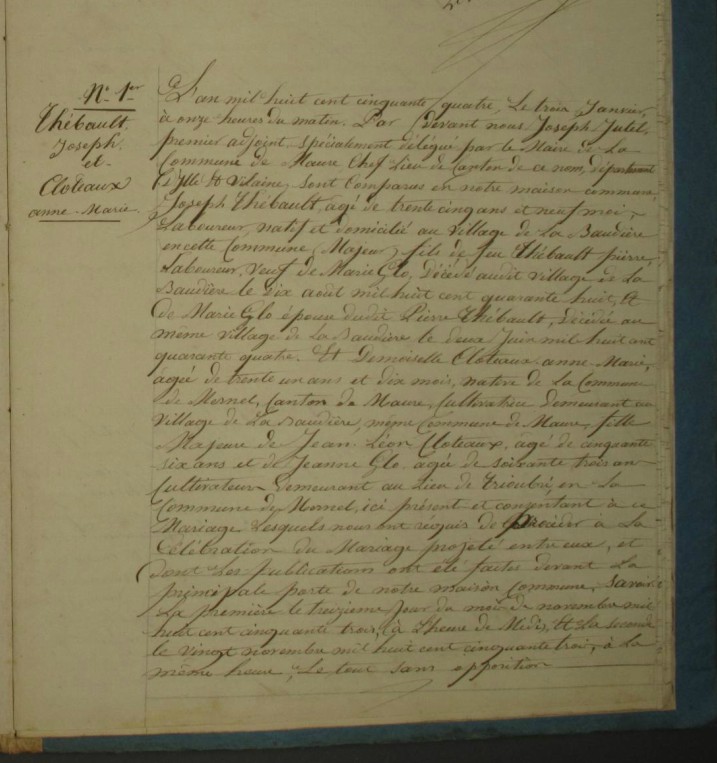 N° 1er
Thébault
Joseph
et
Cloteaux
anne-Marie
L'an mil huit cent cinquante quatre, Le trois Janvier,
à onze heures du matin. Par Devant nous Joseph
premier adjoint, spécialement délégué par le Maire de La
Commune de Maure Chef Lieu de Canton de ce nom, département
d'Ille et Vilaine, sont Comparus en notre maison commune,
Joseph Thébault, agé de trente cinq ans et neuf mois,
Laboureur, natif et domicilié au village de La Baudière
en cette Commune, Majeur, fils de feu Thébault pierre,
Laboureur, Veuf de Marie Glo, Décédé audit village de la
Baudière le six août mil huit cent quarante huit, Et
de Marie Glo épouse dudit Pierre Thébault, Décédée au
même village de La Baudière le deux Juin mil huit cent
quarante quatre. Et Demoiselle Cloteaux anne-Marie,
agée de trente un ans et dix mois, native de La Commune
de Mernel, Canton de Maure, Cultivatrice demeurant au
village de La Baudière, même Commune de Maure, fille
Majeure de Jean Léon Cloteaux, agé de cinquante
six ans et de Jeanne Glo agée de soixante trois ans
Cultivateurs Demeurant au Lieu de en La
Commune de Mernel, ici présent et consentant à ce
Mariage Lesquels nous ont requis de procéder à La
Célébration du Mariage projeté entre eux, et
dont Les publications ont été faites devant La
principale porte de notre maison Commune, Savoir
La première le treizième Jour du mois de novembre mil
huit cent cinquante trois, à L'heure de Midi, Et La seconde
le vingt novembre mil huit cent cinquante trois, à La
même heure, Le tout sans opposition